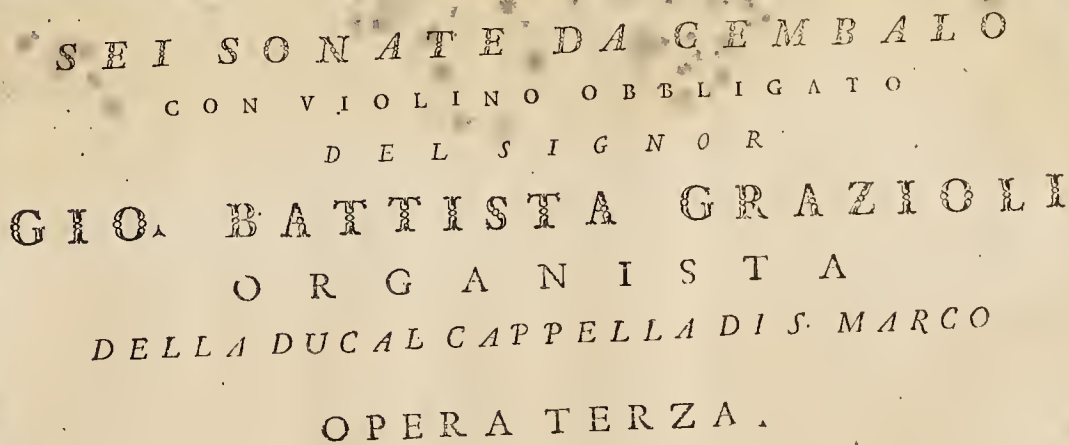 SEI SONATE DA CEMBALO
CON VIOLINO OBBLIGATO
DEL SIGNOR
GIO. BATTISTA GRAZIOLI
ORGANISTA
DELLA DUCAL CAPPELLA DI S. MARCO
OPERA TERZA.